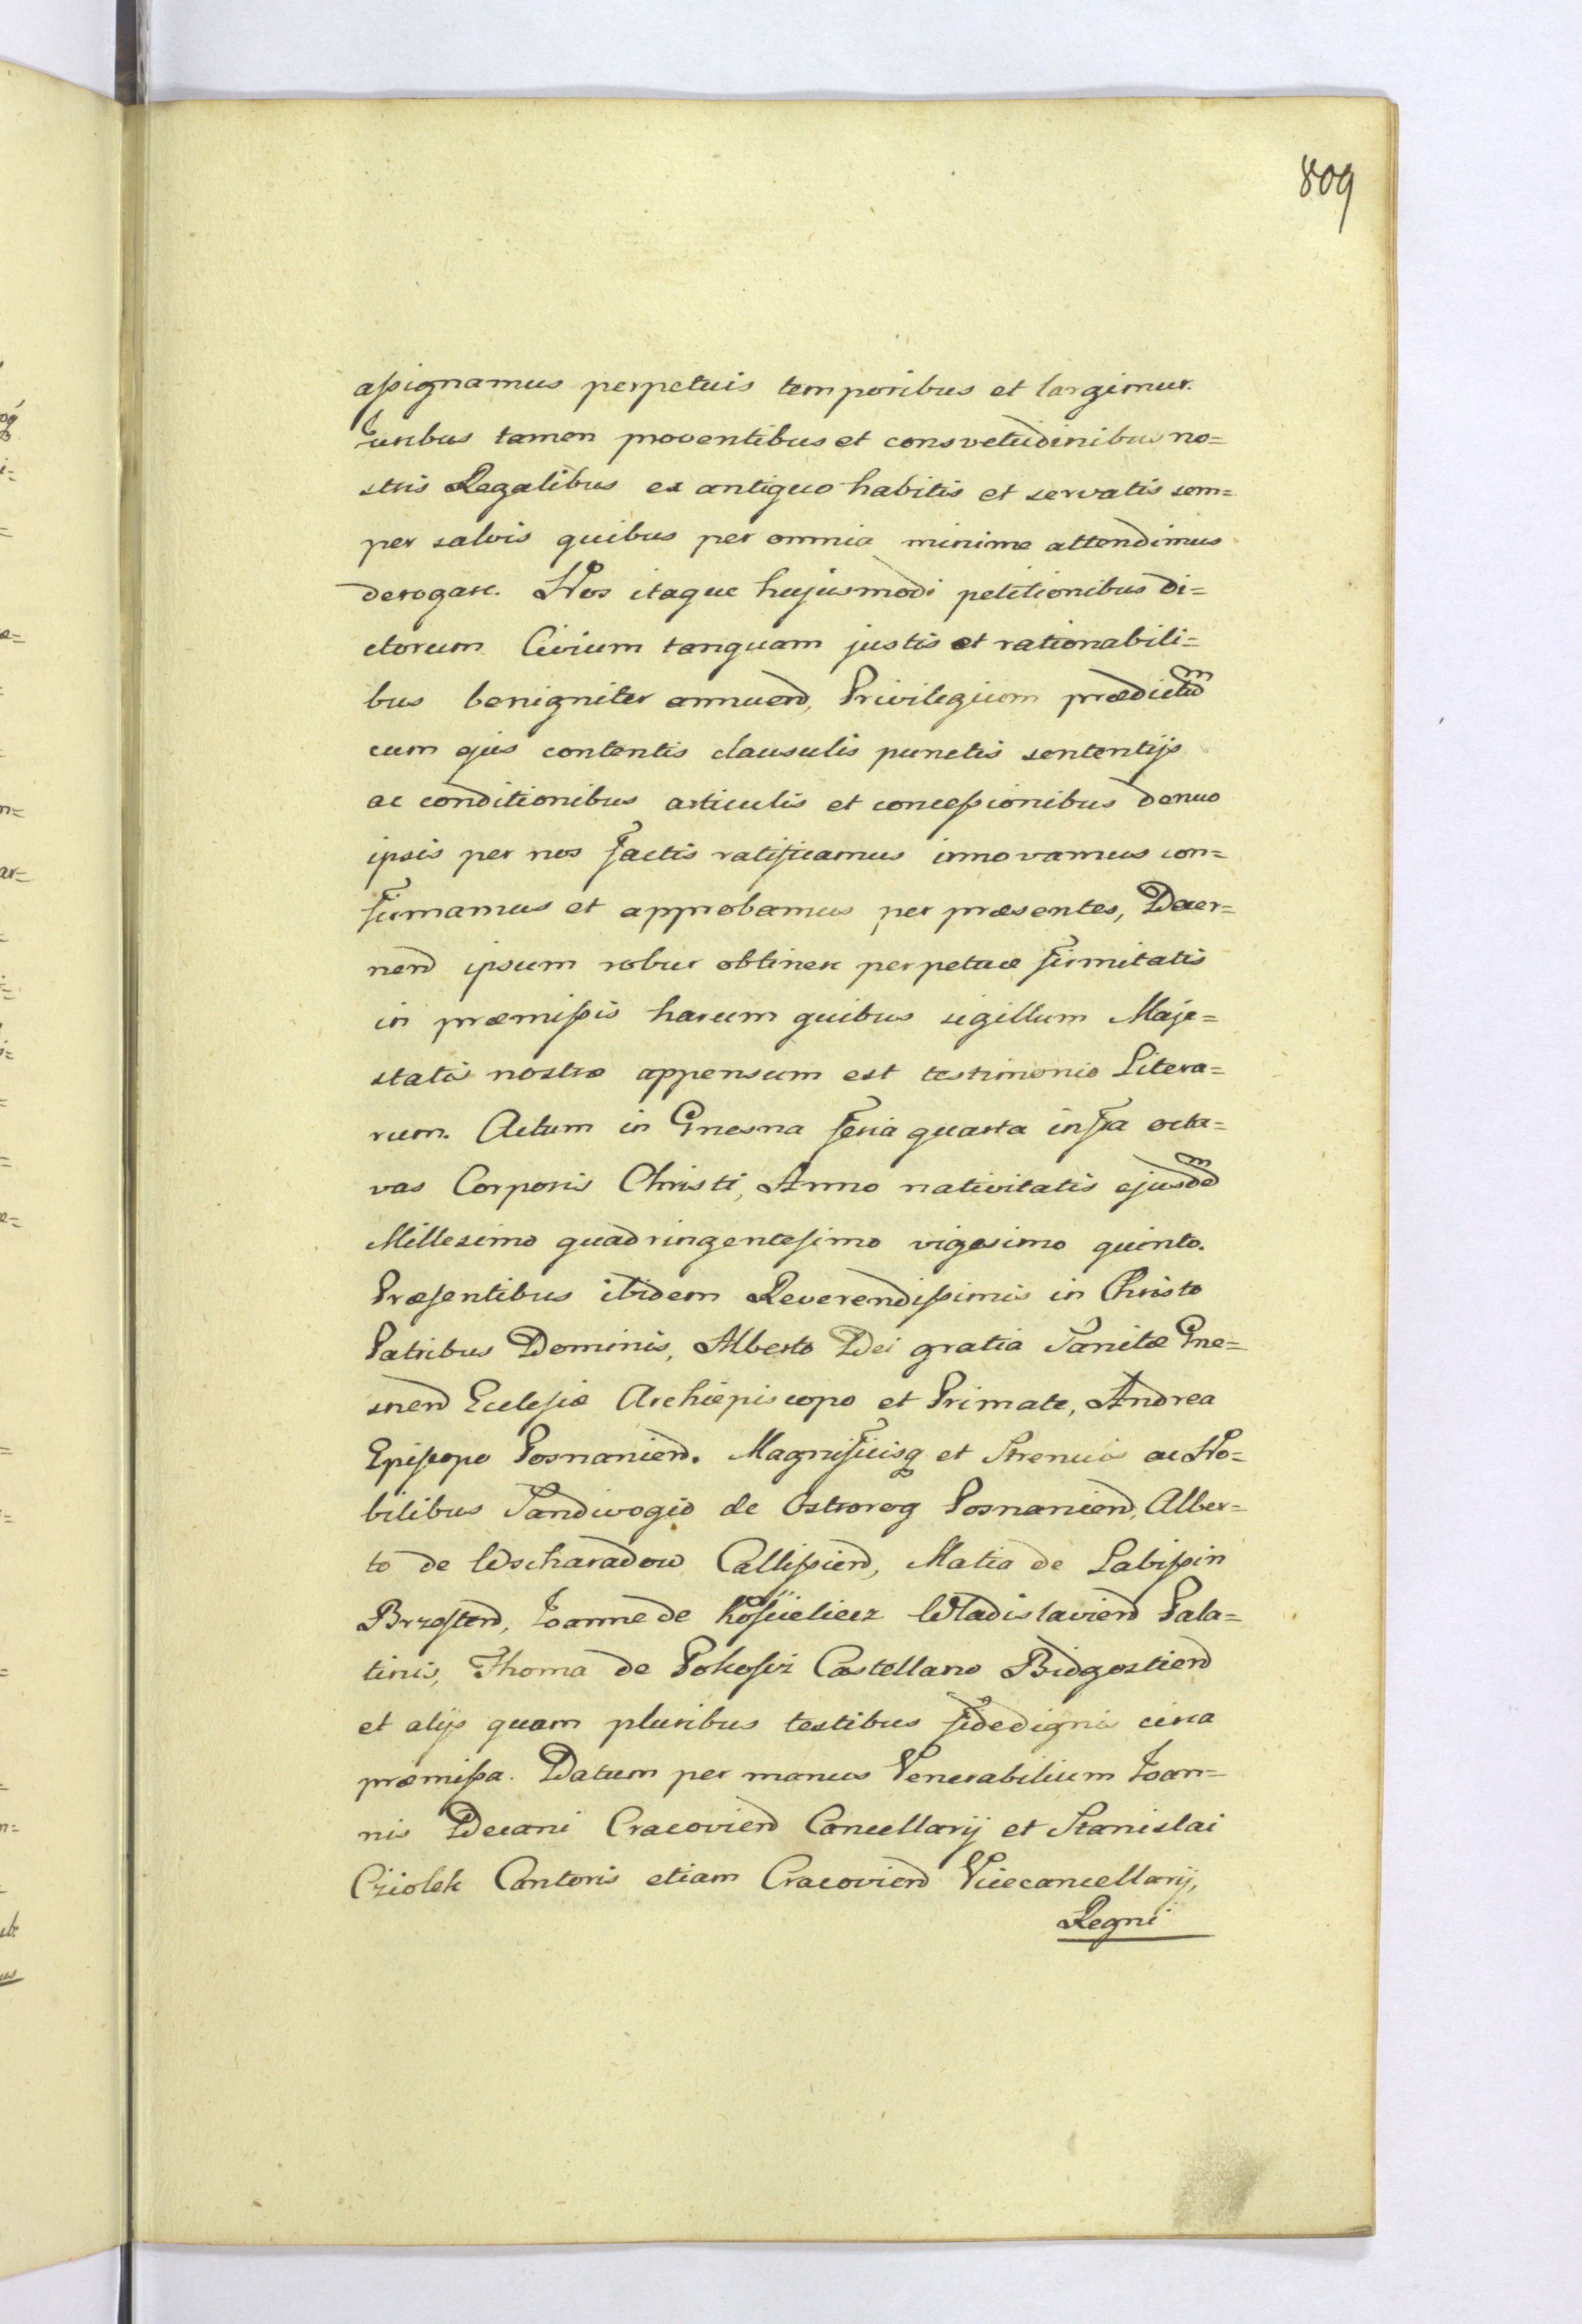 809
assignamus perpetuis temporibus et largimur.
Juribus tamen proventibus et consvetudinibus no=
stris Regalibus ex antiquo habitis et servatis sem=
per salvis quibus per omnia minime attendimus
derogare. Nos itaque hujusmodi petitionibus di=
ctorum Civium tanquam justis et rationabili=
bus benigniter annuend, Privilegium prædictum
cum ejus contentis clausulis punctis sententijs
ac conditionibus articulis et concessionibus denuo
ipsis per nos factis ratificamus innovamus con=
firmamus et approbamus per præsentes, Decer=
nend ipsum robur obtinere perpetuæ firmitatis
in præmissis harum quibus sigillum Maje=
statis nostræ appensum est testimonio Litera=
rum. Actum in Gnesna feria quarta infra octa=
vas Corporis Christi, Anno nativitatis ejusdem
Millesimo quadringentesimo vigesimo quinto.
Præsentibus ibidem Reverendissimis in Christo
Patribus Dominis, Alberto Dei gratia Sanctæ Gne=
snend Eclesiæ Archiepiscopo et Primate, Andrea
Episcopo Posnaniend. Magnificisq et Strenuis ac No=
bilibus Sandivogio de Ostrorog Posnaniend, Alber=
to de Wscharadow Callissiend, Matia de Labissin
Brzestend, Joanne de Koscieliecz Wladislaviend Pala=
tinis, Thoma de Pokoscz Castellano Bidgostiend
et alijs quam pluribus testibus fidedignis circa
præmissa. Datum per manus Venerabilium Joan=
nis Decani Cracoviend Cancellarij et Stanislai
Cziolek Cantoris etiam Cracoviend Vicecancellarij,
Regni